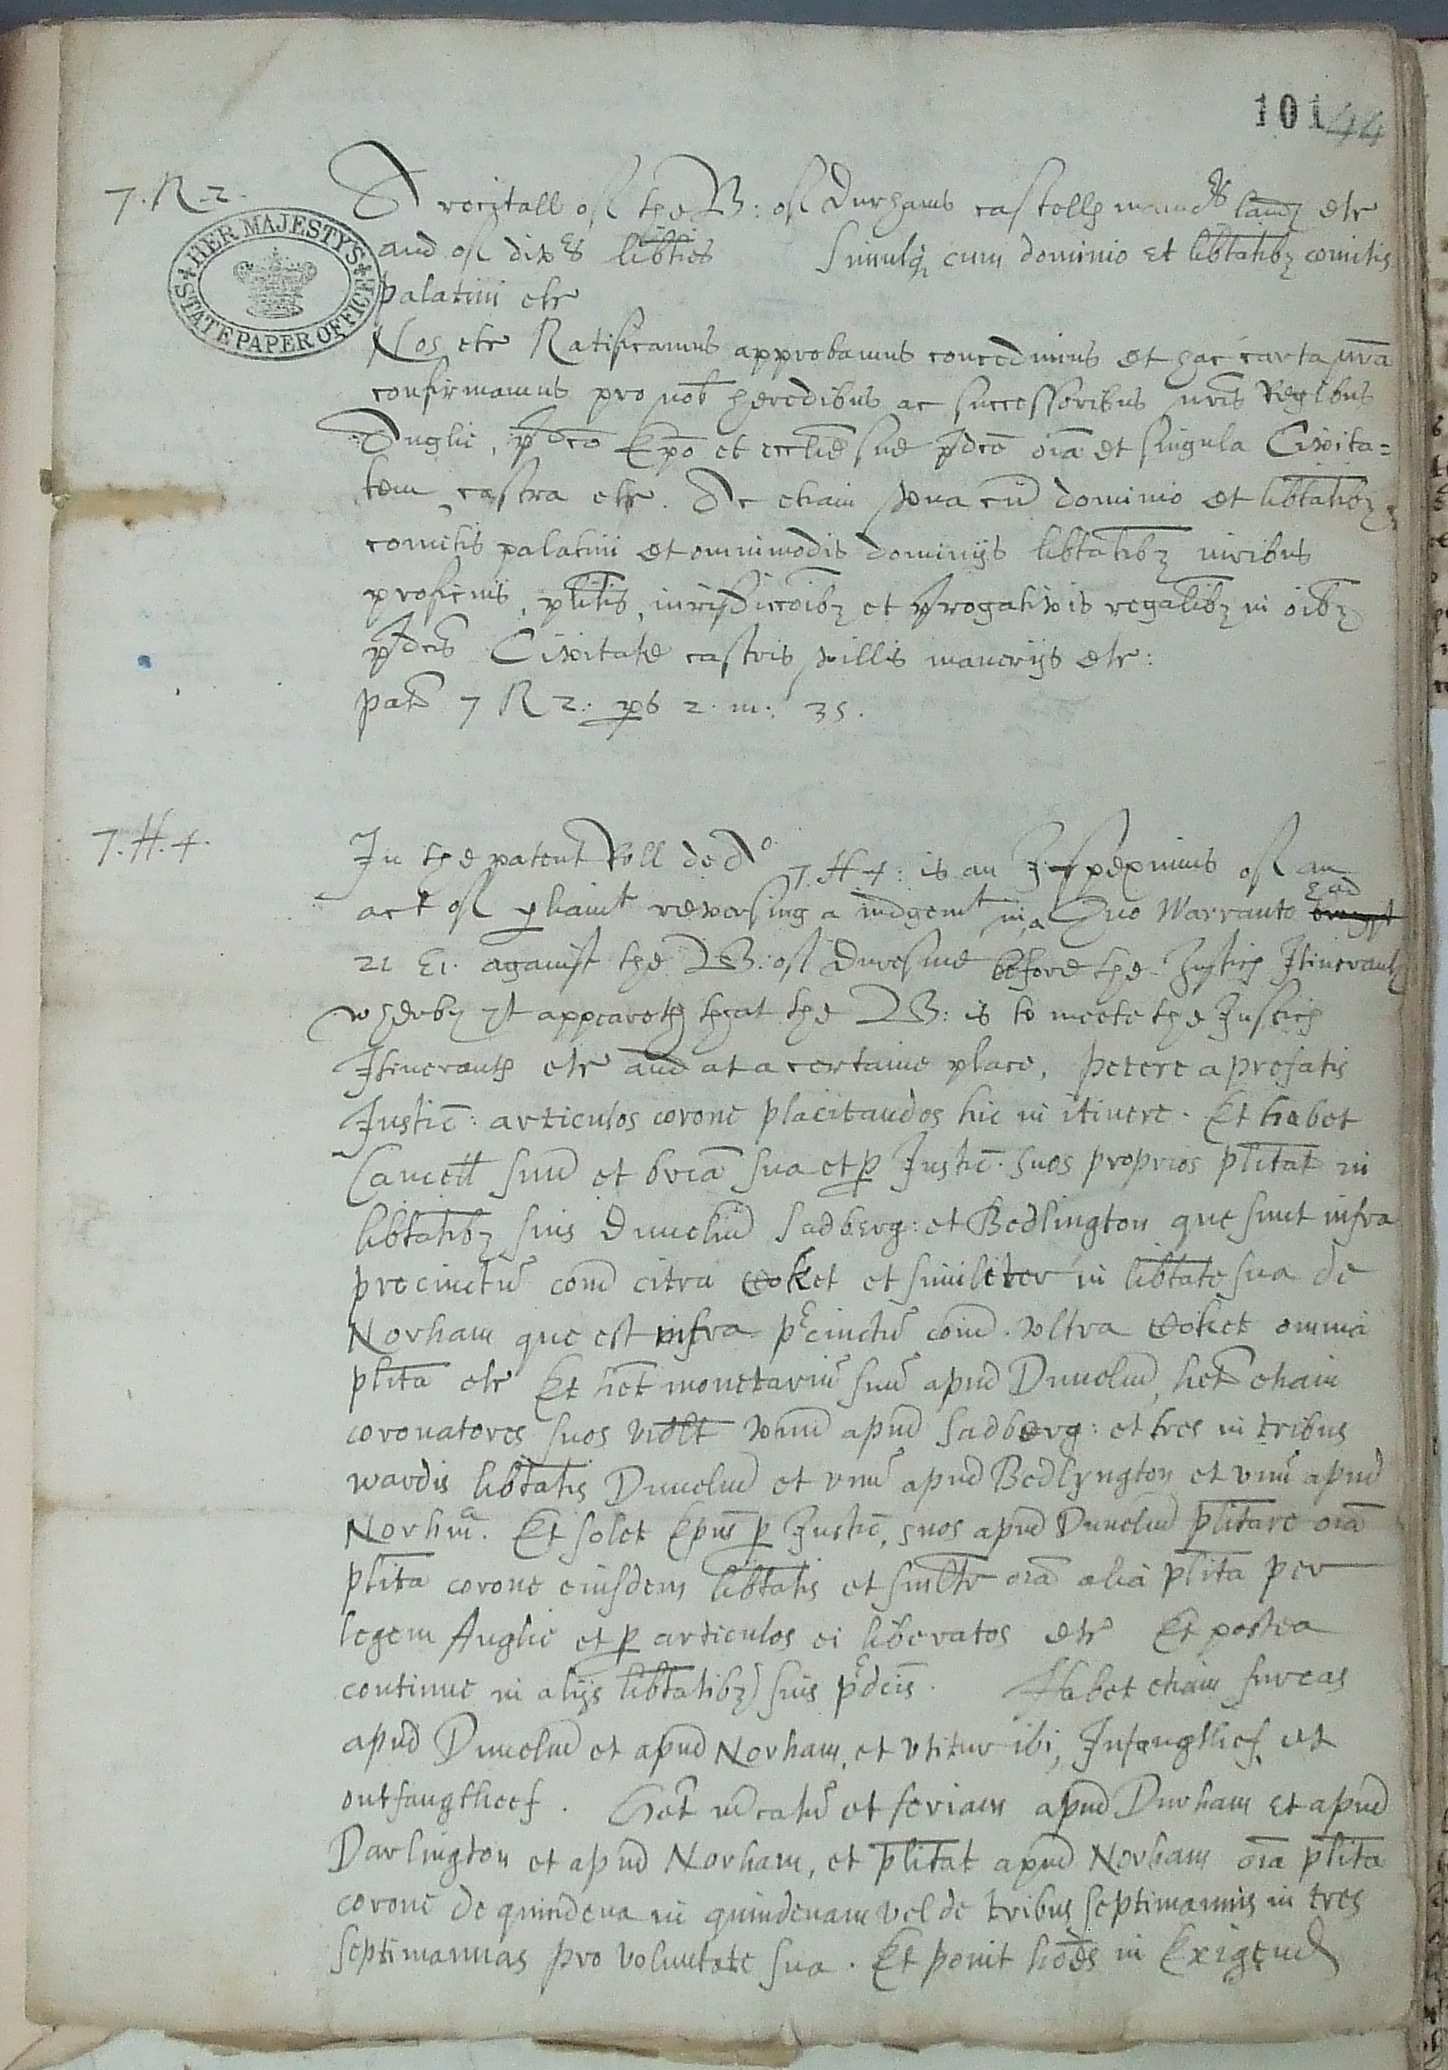 101 44
7. R. 2. A recitall of the B: of Durhams castells manors landes etc
HER MAJESTY'S STATE PAPER OFFICE
and of divers libties Simulq cum dominio et libtatibz comitis
palatini etc
Nos etc Ratificamus approbamus concedimus et hac carta nrã
confirmamus pro nob heredibus ac successoribus nris Regibus
Anglie, pdco Epo et ecclie sue pdce oiã et singula Civita=
tem castra etc. Ac etiam vna cũ dominio et libtatibz
comitis palatini et omnimodis dominijs libtatibz iuribus
proficuis, plitis, iurisdiccoibz et progativis regalibz in oibz
pdcis Civitate castris villis manerijs etc:
pat 7 R 2: ps 2. m: 35.
7. H. 4. In the patent Roll de do 7 H 4: is an Inspeximus of an
act of pliamt reversing a iudgemt in a Quo Warranto had brought
21 E1. against the B: of Duresme before the Justices Itinerants
wherby yt appeareth that the B: is to meete the Justices
Itinerants etc and at a certaine place, petere a prefatis
Justic: articulos corone placitandos hic in itinere. Et habet
Cancell suũ et bria sua et p Justic. suos proprios plitat in
libtatibz suis Dunelm Sadberg: et Bedlington que sunt infra
precinctũ com citra Coket et similiter in libtate sua de
Norham que est infra pcinctũ com. vltra Coket omnia
plita etc Et het monetariũ suũ apud Dunelm, het etiam
coronatores suos vidlt vnum apud Sadberg: et tres in tribus
wardis libtatis Dunelm et vnũ apud Bedlyngton et vnũ apud
Norhm. Et solet Epus p Justic, suos apud Dunelm plitare oiã
plita corone eiusdem libtatis et siliter oiã alia plita per
legem Anglie et p articulos ei liberatos etc Et postea
continue in alijs libtatibz suis pdcis. Habet etiam furcas
apud Dunelm et apud Norham, et vtitur ibi, Infangthef et
outfangtheef. Het mcatũ et feriam apud Durham et apud
Darlington et apud Norham, et plitat apud Norham oiã plita
corone de quindena in quindenam vel de tribus septimannis in tres
septimannas pro voluntate sua. Et ponit hoies in Exigend